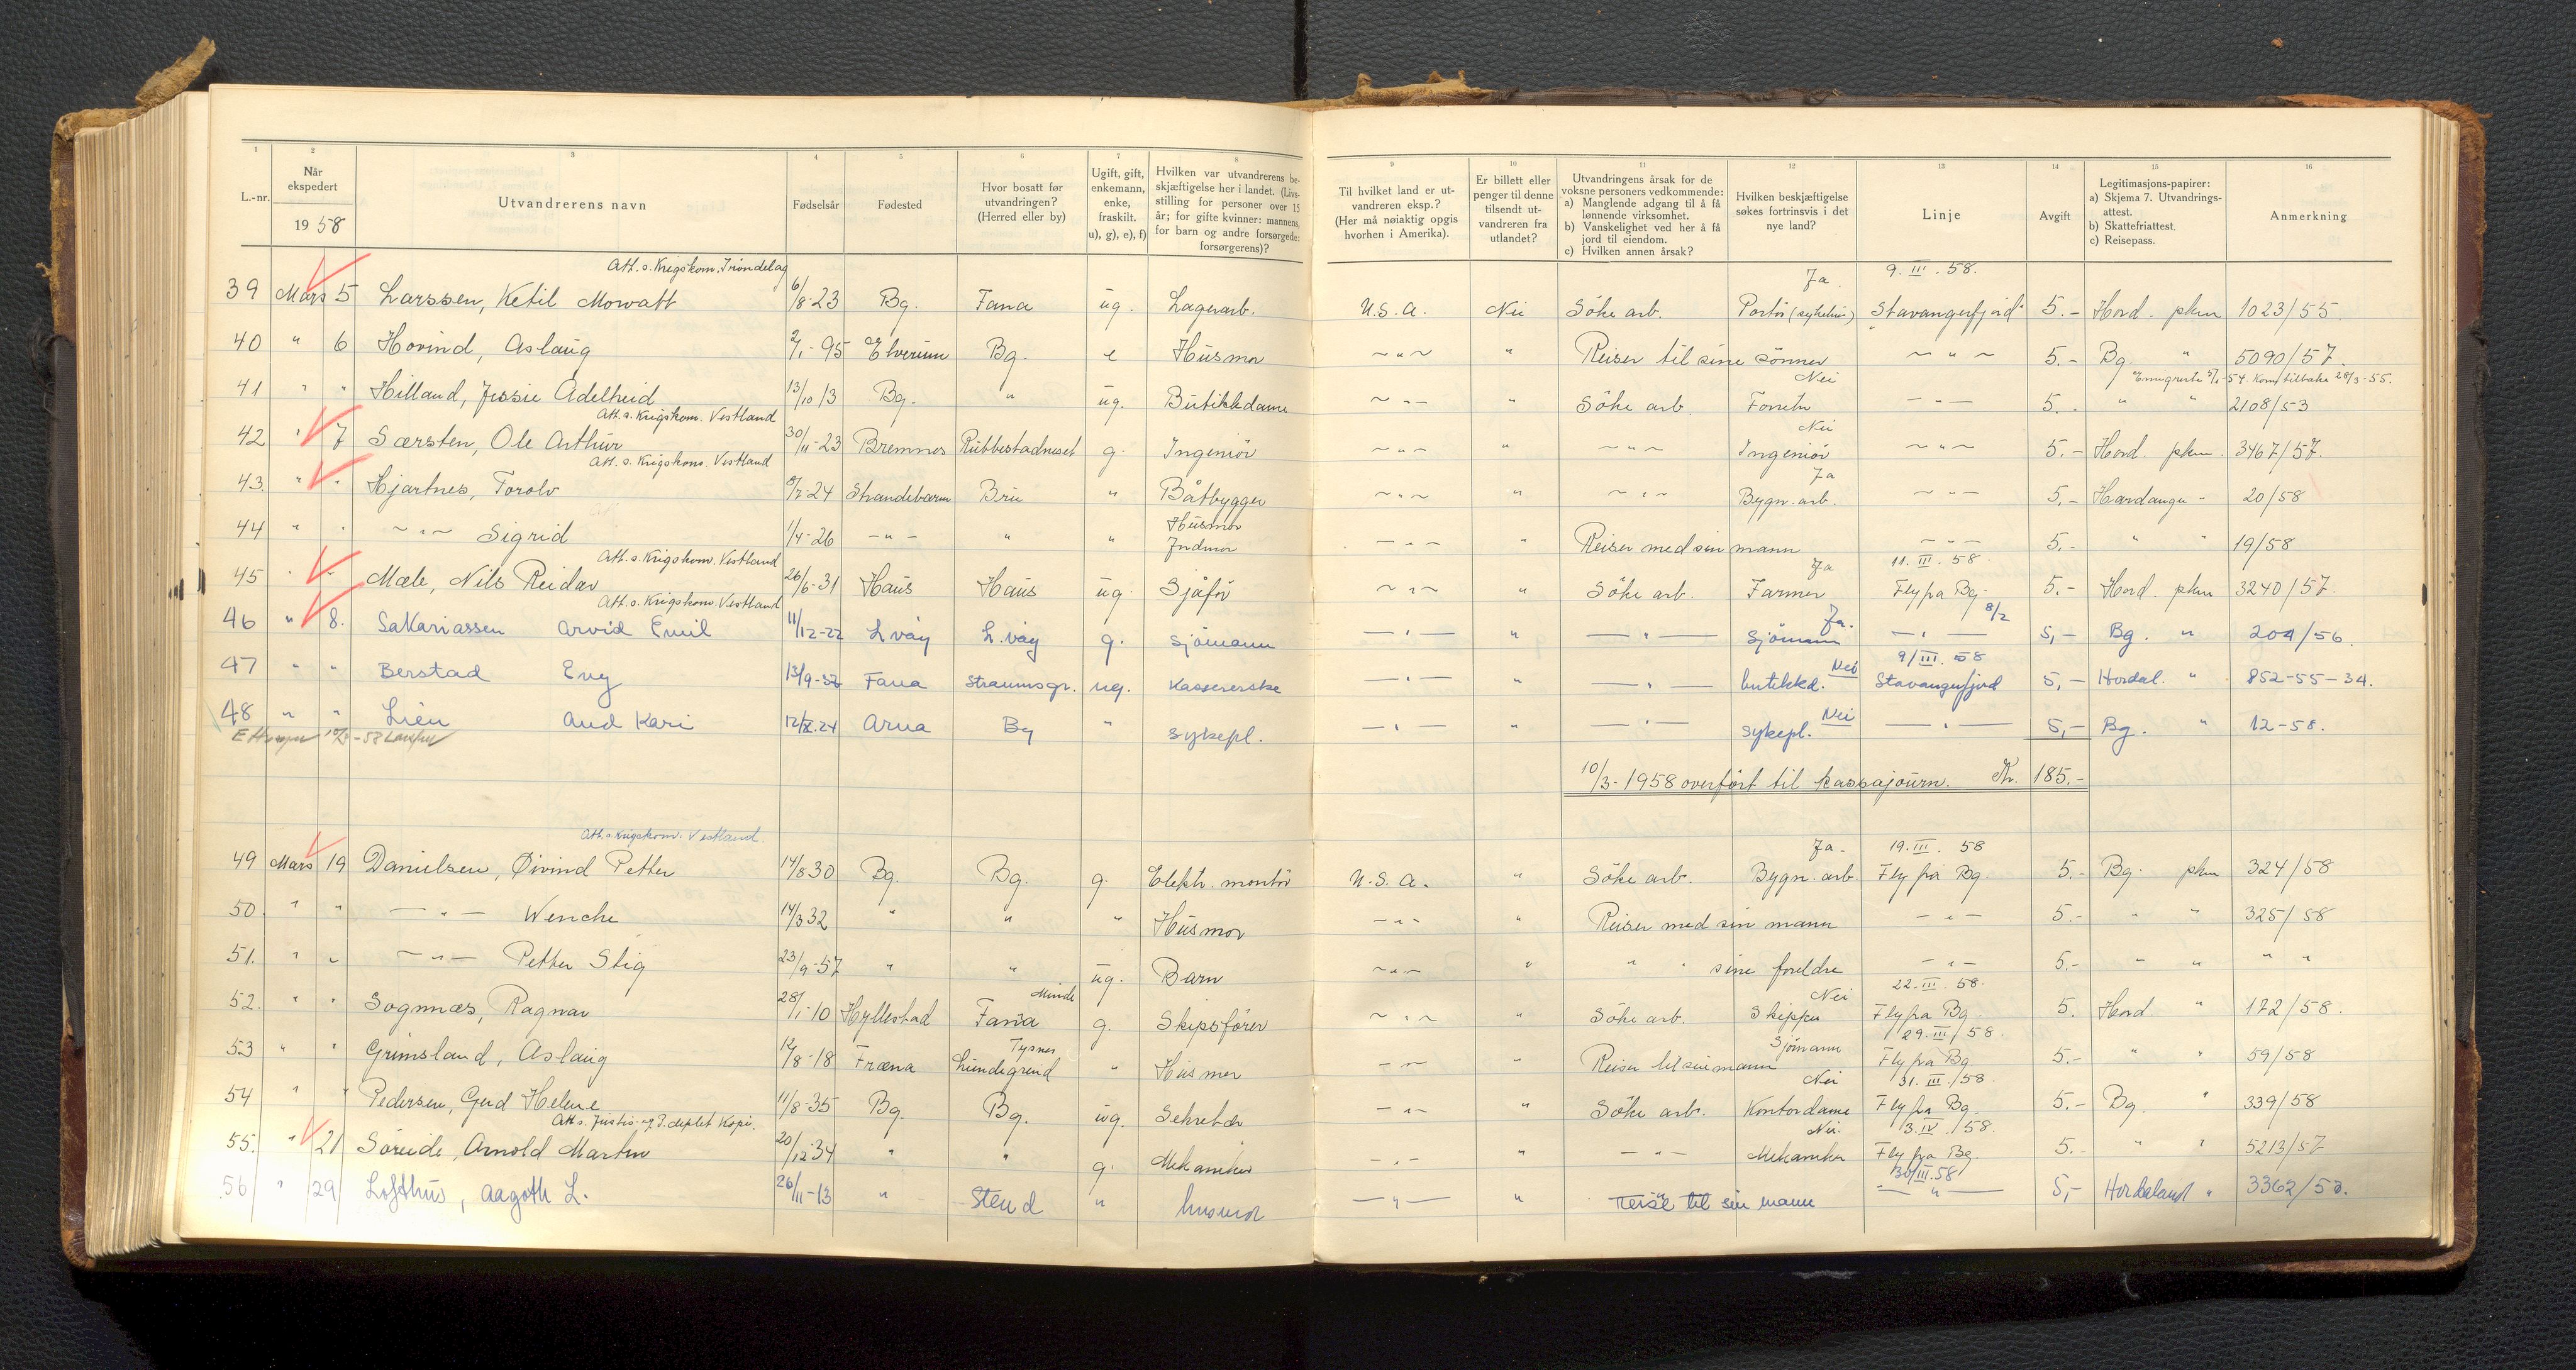 1 2 3 4 5 6 7 8 9 10 11 12 13 14 15 16
L.-nr.
Når ekspedert
19 58
Utvandrerens navn
Fødselsår
Fødested
Hvor bosatt før utvandringen? (Herred eller by)
Ugift, gift, enkemann, enke, fraskilt. u), g), e), f)
Hvilken var utvandrerens beskjæftigelse her i landet. (Livsstilling for personer over 15 år; for gifte kvinner: mannens, for barn og andre forsørgede: forsørgerens)?
Til hvilket land er utvandreren eksp.? (Her må nøiaktig opgis hvorhen i Amerika).
Er billett eller penger til denne tilsendt utvandreren fra utlandet?
Utvandringens årsak for de voksne personers vedkommende:
a) Manglende adgang til å få lønnende virksomhet.
b) Vanskelighet ved her å få jord til eiendom.
c) Hvilken annen årsak?
Hvilken beskjæftigelse søkes fortrinsvis i det nye land?
Linje
Avgift
Legitimasjons-papirer:
a) Skjema 7. Utvandringsattest.
b) Skattefriattest.
c) Reisepass.
Anmerkning
Att. s. Krigskom. Trøndelag Ja. 9. III. 58.
39 Mars 5 Larssen, Ketil Mowatt 6/8-23 Bg. Fana ug. Lagerarb. U.S.A. Nei Söke arb. Portör (sykehus) "Stavangerfjord" 5.- Hord. pkm 1023/55
40 " 6 Hovind, Aslaug 2/1-95 Elverum Bg. e Husmor -"- " Reiser til sine sönner -"- 5.- Bg. " 5090/57.
Nei Emigrerte 5/1-54 Kom tilbake 28/3-55.
41 " " Hilland, Jessie Adelheid 13/10 13 Bg. " ug. Butikkdame -"- " Söke arb. Forretn -"- 5.- " " 2108/53
Att. s. Krigskom. Vestland Nei
42 " 7 Særsten, Ole Arthur 30/11-23 Bremnes Rubbestadneset g. Ingeniör -"- " -"- Ingeniör -"- 5.- Hord. pkm. 3467/57.
Att. s. Krigskom. Vestland Ja
43. " " Hjartnes, Torolv 8/2-24 Strandebarm Bru " Båtbygger -"- " -"- Bygn. arb. -"- 5.- Hardanger - 20/58
44 " " -"- Sigrid 1/4-26 -"- " " Husmor -"- " Reiser med sin mann -"- 5.- " " 19/58
Att. s. Krigskom. Vestland Ja 11. III. 58
45 " " Mæle, Nils Reidar 26/6-31 Haus Haus ug. Sjåför -"- " Söke arb. Farmer Fly fra Bg. 5.- Hord. pkm 3240/57.
Att. s. Krigskom. Vestland Ja. 8/2
46 " 8. Sakariassen Arvid Emil 11/12-22 L våg L. våg g. sjömann -"- " -"- sjömann -"- 5,- Bg. " 204/56.
Nei 9/III. 58
47 " " Berstad Eny Fana Straumsgr. ug. Kassererske -"- " -"- butikkd. Stavangerfjord 5,- Hordal. " 852-55-34.
Nei
48 " " Lien Aud Kari 12/X.24 Arna Bg " sykepl. -"- " -"- sykepl. -"- 5,- Bg. " 12-58.
10/3-1958 overført til kassajourn. Kr. 185.-
Att. s. Krigskom. Vestland Ja. 19. III. 58
49 Mars 19 Danielsen, Øivind Petter 14/8 30 Bg. Bg. g. Elektr. montör U.S.A. " Söke arb. Bygn. arb. Fly fra Bg. 5.- Bg. pkm 324/58
50. " " -"- Wenche 14/3 32 " " " Husmor -"- " Reiser med sin mann -"- 5.- " " 325/58
51. " " -"- Petter Stig 23/9-57 " " ug. Barn -"- " " " sine foreldre -"- 5.- " " " "
Minde Nei 22. III. 58.
52. " " Sognnæs, Ragnar 28/1-10 Hyllestad Fana g. Skipsförer -"- " Söke arb. Skipper Fly fra Bg 5. Hord. " 172/58.
Tysnes Sjömann 29. III/58.
53 " " Grimsland, Aslaug 12/8-18 Fræna Lundegrend " Husmor -"- " Reiser til sin mann Fly fra Bg. 5.- " " 59/58
Nei 31. III./58.
54 " " Pedersen, Gerd Helene 11/8-35 Bg. Bg. ug. Sekretær -"- " Söke arb. Kontordame Fly fra Bg. 5.- Bg. " 339/58
Att. s. Justis- og P. deptet Kopi. Nei. 3. IV./58.
55. " 21 Söreide, Arnold Martin 20/12-34 " " g. Mekaniker -"- " -"- Mekaniker Fly fra Bg. 5.- " " 5213/57
30/III.58
56 " 29 Lofthus, Aagoth L. 26/11-13 " Stend " husmor -"- " reise til sin mann -"- 5,- Hordaland "